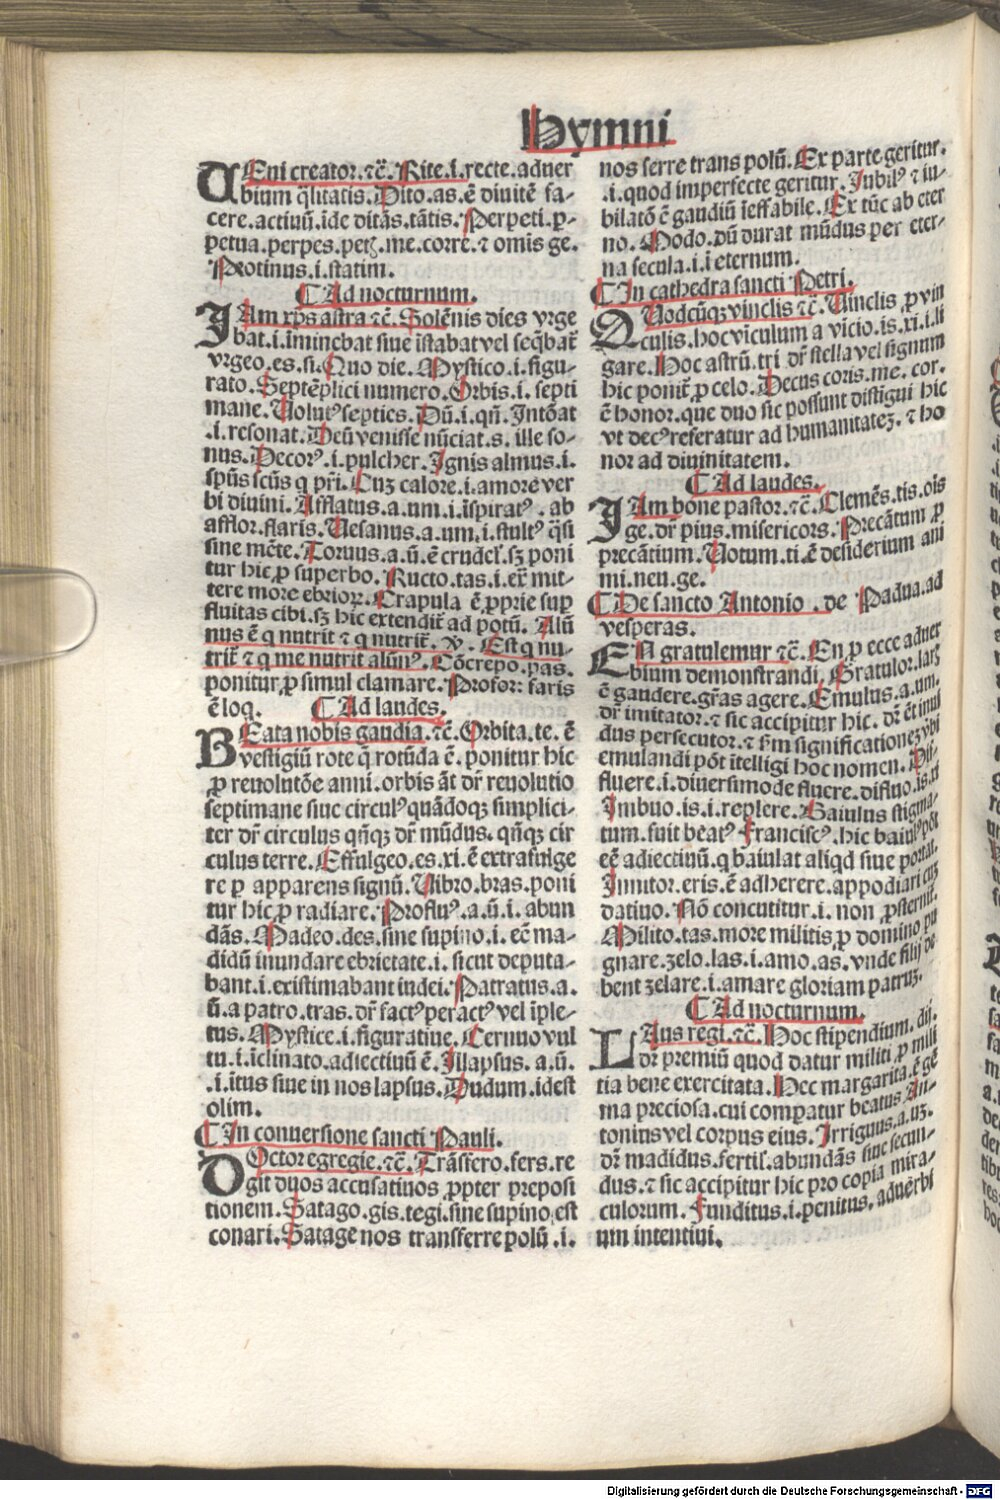 Hymni
VEni creator.⁊c̄. Rite.i.recte.aduer
bium q̄litatis. Dito.as.ē diuitē fa-
cere.actiuū.īde ditās.tātis. Perpeti.p-
petua.perpes.petꝫ.me.corrē.⁊ omis ge.
Protinus.i.statim.
¶ Ad nocturnum.
IAm xp̄s astra ⁊c̄. Solēnis dies vrge
bat.i.iminebat siue īstabat vel seq̄bat̄
vrgeo.es.si. Quo die. Mystico.i.figu-
rato. Septēplici numero. Orbis.i.septi
mane. Volutꝰ septies. Dū.i.qn̄. Intōat
.i.resonat. Deū venisse nūciat.s.ille so-
nus. Decorꝰ.i.pulcher. Ignis almus.i.
spūs scūs q pr̄i. Cuꝫ calore.i.amore ver
bi diuini. Afflatus.a.um.i.īspiratꝰ.ab
afflor.flaris. Uesanus.a.um.i.stultꝰ q̄si
sine mēte. Toruus.a.ū.ē crudel̕.sꝫ poni
tur hic ꝓ superbo. Ructo.tas.i.er̄ mit-
tere more ebrioꝝ. Crapula ē ꝓprie sup
fluitas cibi.sꝫ hic extendit̄ ad potū. Alū
nus ē q nutrit ⁊ q nutrit̄. ꝟ. Est q nu-
trit̄ ⁊ q me nutrit alūnꝰ. Cōcrepo.pas.
ponitur ꝓ simul clamare. Profor: faris
ē loq.
¶ Ad laudes.
BEata nobis gaudia.⁊c̄. Orbita.te.ē
vestigiū rote q̄ rotūda ē. ponitur hic
ꝓ reuolutōe anni.orbis āt dr̄ reuolutio
septimane siue circulꝰ quādoqꝫ simplici-
ter dr̄ circulus qn̄qꝫ dr̄ mūdus. qn̄qꝫ cir
culus terre. Effulgeo.es.xi.ē extrafulge
re p apparens signū. Vibro.bras.poni
tur hic ꝓ radiare. Profluꝰ.a.ū.i.abun
dās. Madeo.des.sine supino.i.ec̄ ma-
didū inundare ebrietate.i.sicut deputa-
bant.i.existimabant iudei. Patratus.a.
ū.a patro.tras.dr̄ factꝰ peractꝰ vel īple-
tus. Mystice.i.figuratiue. Cernuo vul
tu.i.īclinato.adiectiuū ē. Illapsus.a.ū.
.i.ītus siue in nos lapsus. Dudum.idest
olim.
¶ In conuersione sancti Pauli.
DOctor egregie.⁊c̄. Trāsfero.fers.re
git duos accusatiuos ꝓpter preposi
tionem. Satago.gis.tegi.sine supino est
conari. Satage nos transferre polū.i.
nos ferre trans polū. Ex parte geritur.
.i.quod imperfecte geritur. Iubilꝰ ⁊ iu-
bilatō ē gaudiū īeffabile. Ex tūc ab eter
no. Modo.dū durat mūdus per eter-
na secula.i.i eternum.
¶ In cathedra sancti Petri.
QUodcūqꝫ vinclis ⁊c̄. Uinclis ꝓ vin
culis.hoc viculum a vicio.is.xi.i.li
gare. Hoc astrū.tri dr̄ stella vel signum
hic ponit̄ ꝓ celo. Decus coris.me.cor.
ē honor.que duo sic possunt distigui hic
vt decꝰ referatur ad humanitateꝫ.⁊ ho
nor ad diuinitatem.
¶ Ad laudes.
IAm bone pastor.⁊c̄. Clemēs.tis.ois
ge.dr̄ pius.misericors. Precātum ꝓ
precātium. Votum.ti.ē desiderium ani
mi.neu.ge.
¶ De sancto Antonio.de Padua.ad
vesperas.
EN gratulemur ⁊c̄. En p ecce aduer
bium demonstrandi. Gratulor.laris
ē gaudere.gr̄as agere. Emulus.a.um.
dr̄ imitator.⁊ sic accipitur hic. dr̄ ēt inui
dus persecutor.⁊ sm̄ significationeꝫ vbi
emulandi pōt ītelligi hoc nomen. Dif
fluere.i.diuersimode fluere.difluo.is.xi
Imbuo.is.i.replere. Baiulus stigma-
tum.fuit beatꝰ Franciscꝰ.hic baiulꝰ pōt
eē adiectiuū.q baiulat aliqd siue portat.
Innitor.eris.ē adherere.appodiari cuꝫ
datiuo. Nō concutitur.i.non ꝓsternit̄.
Milito.tas.more militis ꝓ domino pu
gnare.zelo.las.i.amo.as.vnde filij de
bent zelare.i.amare gloriam patruꝫ.
¶ Ad nocturnum.
LAus regi.⁊c̄. Hoc stipendium.dij.
dr̄ premiū quod datur militi ꝓ mili
tia bene exercitata. Hec margarita.ē gē
ma preciosa.cui comparatur beatus An-
tonius vel corpus eius. Irriguus.a.uꝫ.
dr̄ madidus.fertil̕.abundās siue secun-
dus.⁊ sic accipitur hic pro copia mira-
culorum. Funditus.i.penitus.aduerbi
um intentiui.
Digitalisierung gefördert durch die Deutsche Forschungsgemeinschaft - DFG